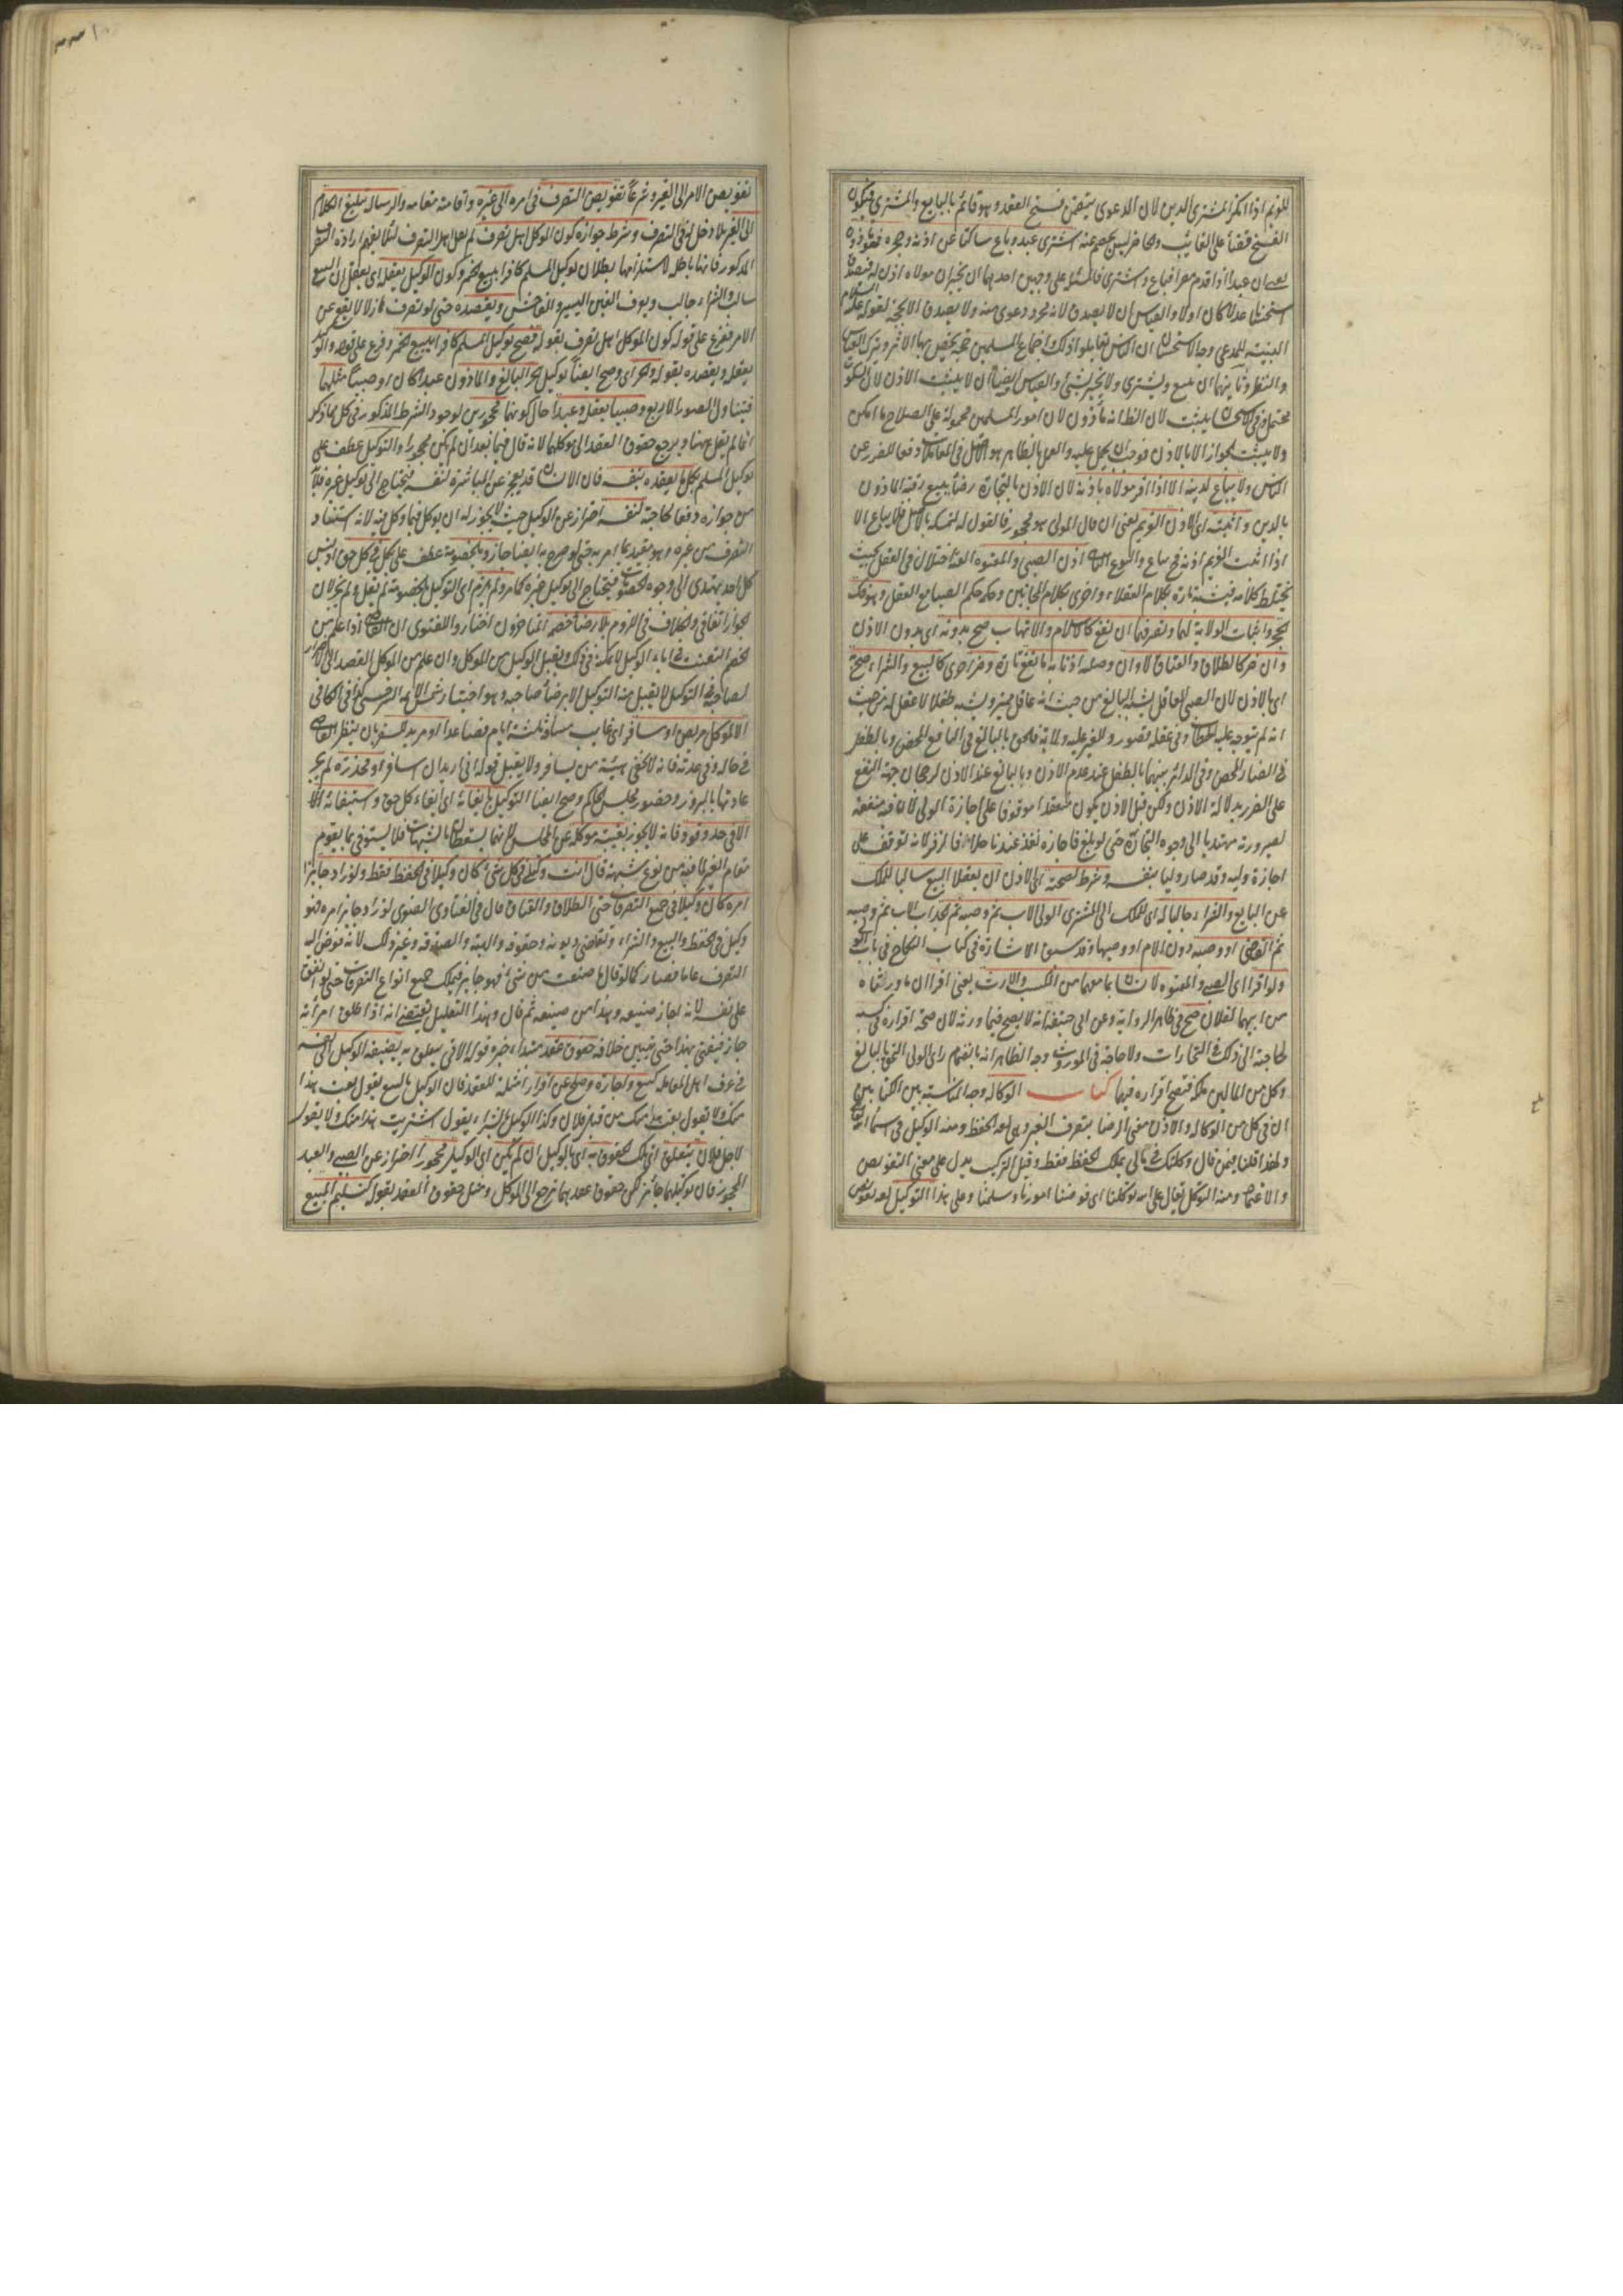 للغريم اذا انكر المشترى الدين لان الدعوى يتضمن فسخ العقد وهو قائم بالبايع والمشترى فيكون
الفسخ قضاء على الغايب والحاضر ليس بخصم عنه اشترى عبد وباع ساكتا عن اذنه وحجره فهو ماذون
يعنى ان عبدا اذا قدم مصرا فباع واشترى فالمسئلة على وجهين احدهما ان يخبر ان مولاه اذن له فيصدق
استحسانا عدلا كان او لا والقياس ان لا يصدق لانه مجرد دعوى منه ولا يصدق الا بحجة لقوله عليه السلام
البينة للمدعى وجه الاستحسان ان الناس تعاملوا ذلك واجماع المسلمين حجة يخص بها الاثر ويترك القياس
والنظر وثانيهما ان يبيع ويشترى ولا يخبر بشئ والقياس ايضا ان لا يثبت الاذن لان السكوت
محتمل وفى الاستحسان يثبت لان الظاهر انه ماذون لان امور المسلمين محمولة على الصلاح ما امكن
ولا يثبت الجواز الا بالاذن فوجب ان يحمل عليه والعمل بالظاهر هو الاصل فى المعاملات دفعا للضرر عن
الناس ولا يباع لدينه الا اذا اقر مولاه باذنه لان الاذن بالتجارة رضا ببيع رقبة الماذون
بالدين واثبته اى الاذن الغريم يعنى ان قال المولى هو محجور فالقول له لتمسكه بالاصل فلا يباع الا
اذا اثبت الغريم اذنه فح يباع والنوع الثانى اذن الصبى والمعتوه العته اختلال فى العقل بحيث
يختلط كلامه فيشبه تارة بكلام العقلاء واخرى بكلام المجانين وحكمه حكم الصبا مع العقل وهو فك
الحجر واثبات الولاية لهما وتصرفهما ان نفع كالاسلام والاتهاب صح بدونه اى بدون الاذن
وان ضر كالطلاق والعتاق لا وان وصلية اذنا به ما نفع تارة وضر اخرى كالبيع والشراء صح به
اى بالاذن لان الصبى العاقل يشبه البالغ من حيث انه عاقل مميز ويشبه طفلا لا عقل له من حيث
انه لم يتوجه عليه الخطاب وفى عقله قصور وللغير عليه ولاية فالحق بالبالغ فى النافع المحض وبالطفل
فى الضار المحض وفى الدائر بينهما بالطفل عند عدم الاذن وبالبالغ عند الاذن لرجحان جهة النفع
على الضرر بدلالة الاذن ولكن قبل الاذن يكون منعقدا موقوفا على اجازة الولى لان فيه منفعة
لصيرورته مهتديا الى وجوه التجارة حتى لو بلغ فاجازه نفذ عندنا خلافا لزفر لانه توقف على
اجازة وليه وقد صار وليا بنفسه وشرط لصحته اى الاذن ان يعقلا البيع سالبا للملك
عن البايع والشراء جالبا له اى للملك الى المشترى الولى الاب ثم وصيه ثم الجد اب الاب ثم وصيه
ثم القاضى او وصيه دون الام او وصيها وقد سبق الاشارة فى كتاب النكاح فى باب الولى
ولو اقرا اى الصبى والمعتوه لانسان بما معهما من الكسب والارث يعنى اقرا ان ما ورثاه
من ابيهما لفلان صح فى ظاهر الرواية وعن ابى حنيفة انه لا يصح فيما ورثه لان صحة اقراره فى كسبه
لحاجته الى ذلك فى التجارات ولا حاجة فى الموروث وجه الظاهر انه بانضمام راى الولى التحق بالبالغ
وكل من المالين ملكه فتصح اقراره فيهما كتاب الوكالة وجه المناسبة بين الكتابين
ان فى كل من الوكالة والاذن معنى الرضا بتصرف الغير وهى لغة الحفظ ومنه الوكيل فى اسماء الله تعالى
ولهذا قلنا فيمن قال وكلتك فى مالى يملك الحفظ فقط وقيل التركيب يدل على معنى التفويض
والاعتماد ومنه التوكل يقال على الله توكلنا اى فوضنا امورنا وسلمنا وعلى هذا التوكيل لغة تفويض
تفويض الامر الى الغير وشرعا تفويض التصرف فى امره الى غيره واقامته مقامه والرسالة تبليغ الكلام
الى الغير بلا دخل له فى التصرف وشرط جوازه كون الموكل اهل تصرف لم يقل اهل التصرف لئلا يفهم ارادة التصرف
المذكور فانها باطلة لاستلزامها بطلان توكيل المسلم كافرا ببيع الخمر وكون الوكيل يعقله اى يعقل ان البيع
سالب والشراء جالب ويعرف الغبن اليسير والفاحش ويقصده حتى لو تصرف هازلا لا يقع عن
الامر ففرع على قوله كون الموكل اهل تصرف بقوله فصح توكيل المسلم كافرا ببيع الخمر وفرع على قوله والوكيل
يعقله ويقصده بقوله والحر اى وصح ايضا توكيل الحر البالغ والماذون عبدا كان او صبيا مثلهما
فيتناول الصور الاربع وصبيا يعقله وعبدا حال كونهما محجورين لوجود الشرط المذكور فى كل مما ذكر
انما لم يقل ههنا ويرجع حقوق العقد الى موكلهما لانه قال فيما بعد ان لم يكن محجورا والتوكيل عطف على
توكيل المسلم بكل ما يعقده بنفسه فان الانسان قد يعجز عن المباشرة لنفسه فيحتاج الى توكيل غيره فلا بد
من جوازه دفعا لحاجته لنفسه احتراز عن الوكيل حيث لا يجوز له ان يوكل فيما وكل فيه لانه استفاد
التصرف من غيره وهو مقيد بما امر به حتى لو صرح به ايضا جاز وبالخصومة عطف على بكل فى كل حق اذ ليس
كل احد يهتدى الى وجوه الخصومات فيحتاج الى توكيل غيره كما مر ولم يلزم اى التوكيل بالخصومة لم يقل ولم يجز لان
الجواز اتفاقى والخلاف فى اللزوم بلا رضا خصمه المتاخرون اختاروا للفتوى ان القاضى اذا علم من
الخصم التعنت فى اباء الوكيل لا يمكنه من ذلك ويقبل الوكيل من الموكل وان علم من الموكل القصد الى الاضرار
لصاحبه فى التوكيل لا يقبل منه التوكيل الا برضا صاحبه وهو اختيار شمس الائمة السرخسى كذا فى الكافى
الا لموكل مريض او مسافر اى غايب مسافة ثلثة ايام فصاعدا او مريد للسفر بان ينظر القاضى
فى حاله وفى عدته فانه لا يخفى هيئة من يسافر ولا يقبل قوله انى اريد ان اسافر او مخدرة لم يجر
عادتها بالبروز وحضور مجلس الحاكم وصح ايضا التوكيل بايفائه اى ايفاء كل حق واستيفائه الا
الا فى حد وقود فانه لا يجوز بغيبة موكله عن المجلس لانهما يسقطان بالشبهات فلا يستوفى بما يقوم
مقام الغير لما فيه من نوع شبهة قال انت وكيلى فى كل شئ كان وكيلا فى الحفظ فقط ولو زاد جايزا
امره كان وكيلا فى جميع التصرفات حتى الطلاق والعتاق قال فى الفتاوى الصغرى لو زاد جايز امره فهو
وكيل فى الحفظ والبيع والشراء وتقاضى ديونه وحقوقه والهبة والصدقة وغير ذلك لانه فوض اليه
التصرف عاما فصار كما لو قال ما صنعت من شئ فهو جايز فيملك جميع انواع التصرفات حتى لو انفق
على نفسه لانه اجاز صنيعه وهذا من صنيعه ثم قال وهذا التعليل يقتضى انه اذا طلق امراته
جاز فيفتى بهذا حتى يتبين خلافه حقوق عقد مبتداء خبره قوله الاتى يتعلق به يضيفه الوكيل الى نفسه
فى عرف اهل المعاملة كبيع واجارة وصلح عن اقرار امثلة للعقد فان الوكيل بالبيع يقول بعت هذا
منك ولا يقول بعت هذا منك من قبل فلان وكذا الوكيل بالشراء يقول اشتريت هذا منك ولا يقول
لاجل فلان يتعلق اى تلك الحقوق به اى بالوكيل ان لم يكن اى الوكيل محجورا احتراز عن الصبى والعبد
المحجور فان توكيلهما جائز لكن حقوق عقدهما ترجع الى الموكل ومثل حقوق العقد بقوله كتسليم المبيع